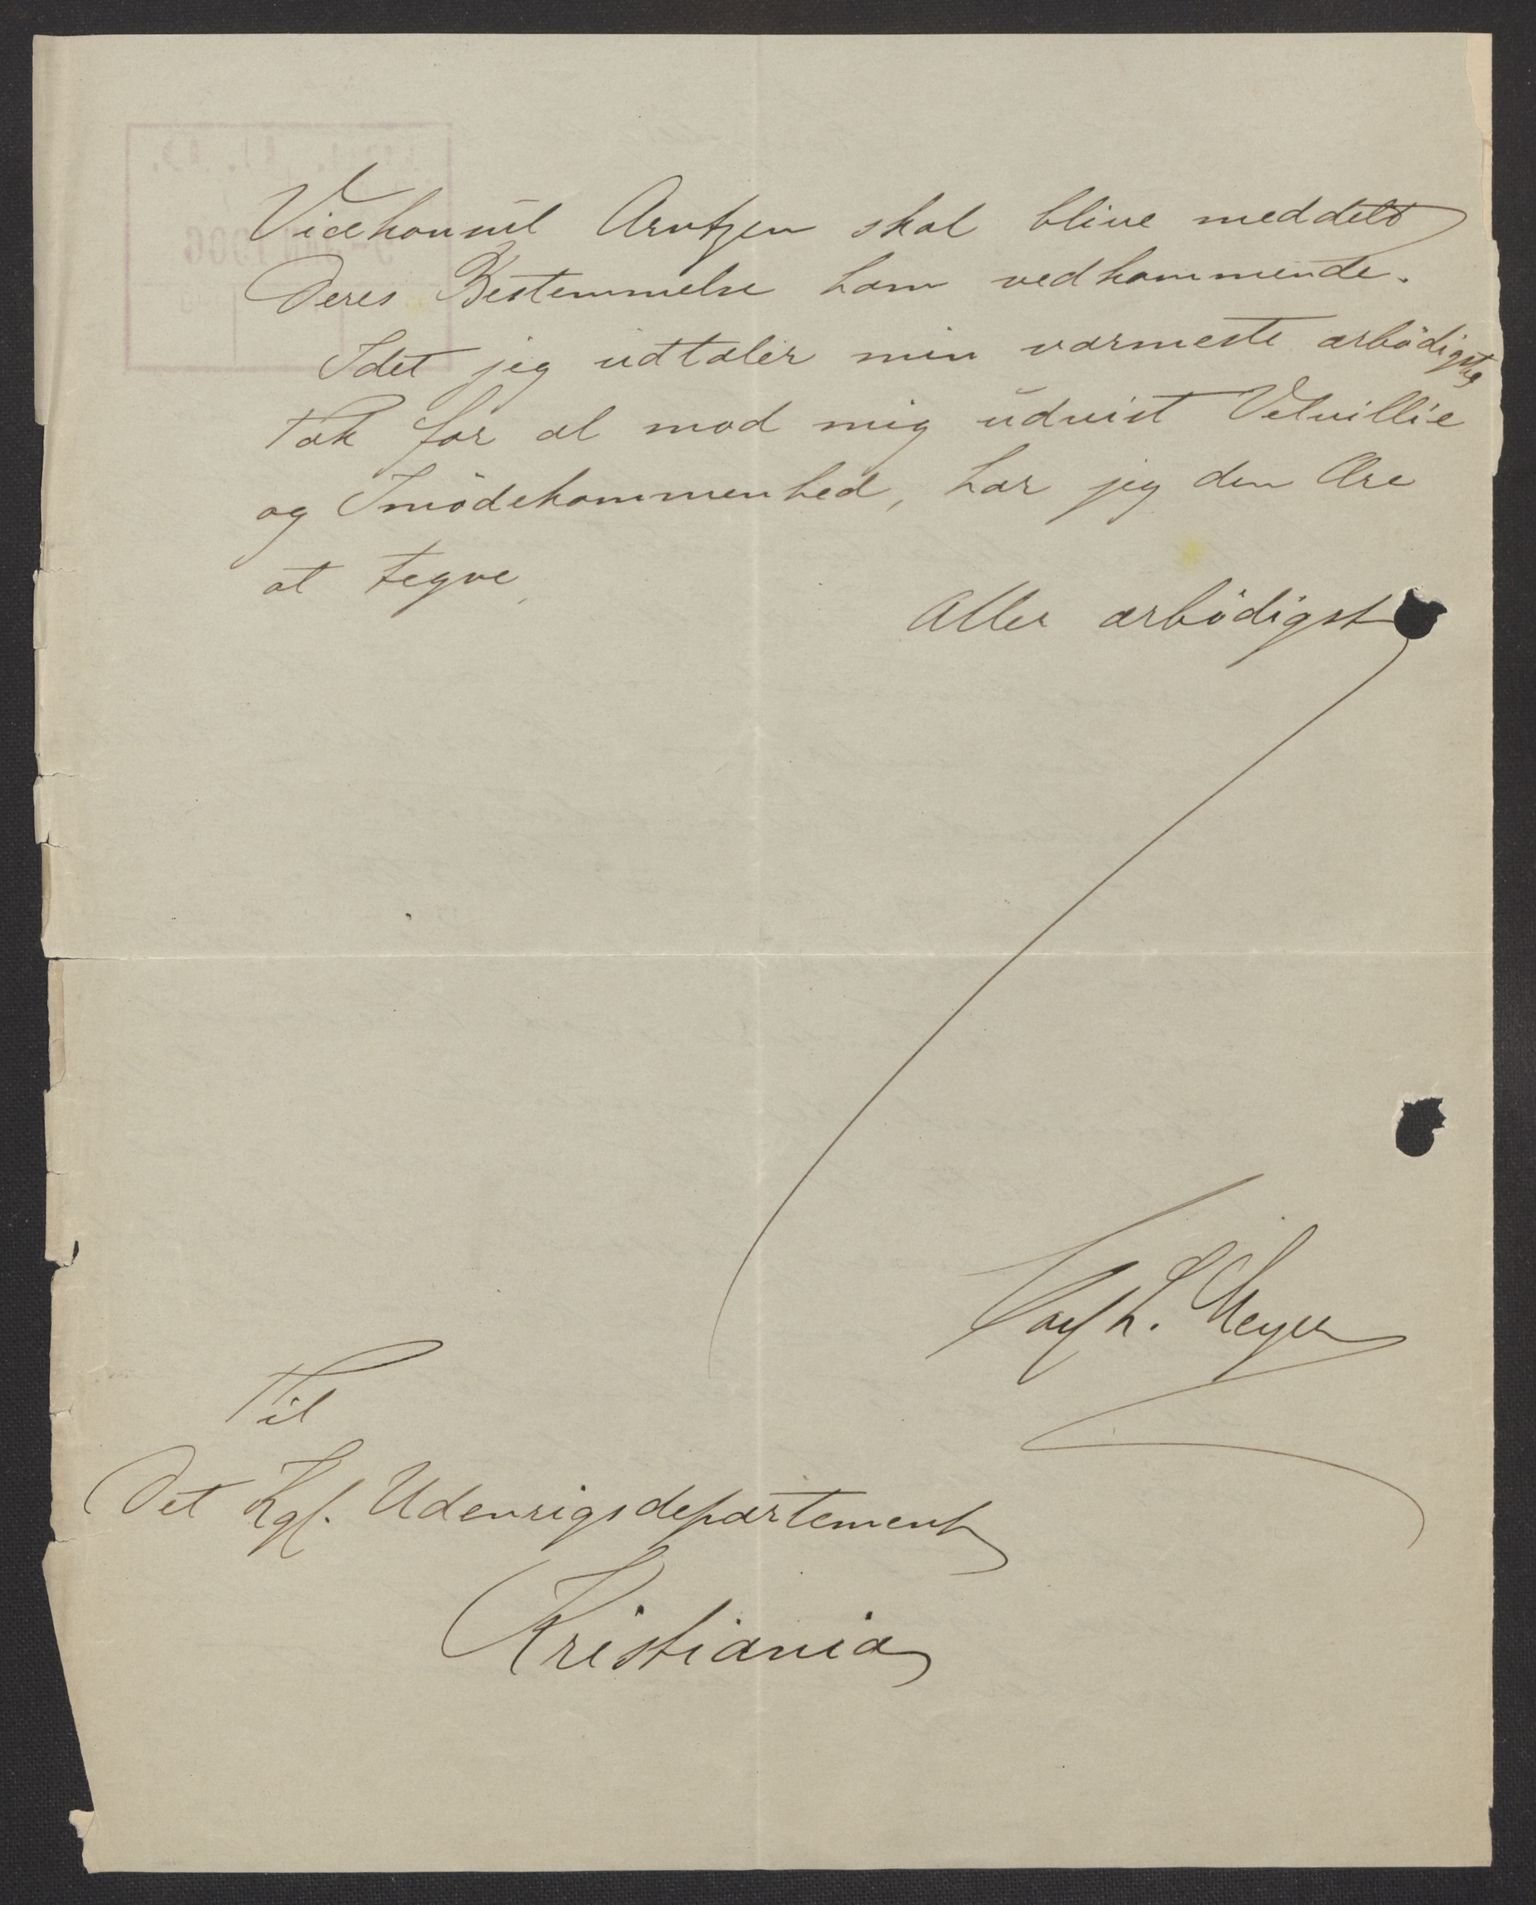 Vicekonsul Arntzen skal blive meddelt
Deres Bestemmelse ham vedkommende.
Idet jeg udtaler min varmeste ærbødigste
Tak for al mod mig udvist Velvillie
og Imødekommenhed, har jeg den Ære
at tegne,
Aller ærbødigst
Meyer
Til
Det Kgl. Udenrigsdepartement
Kristiania